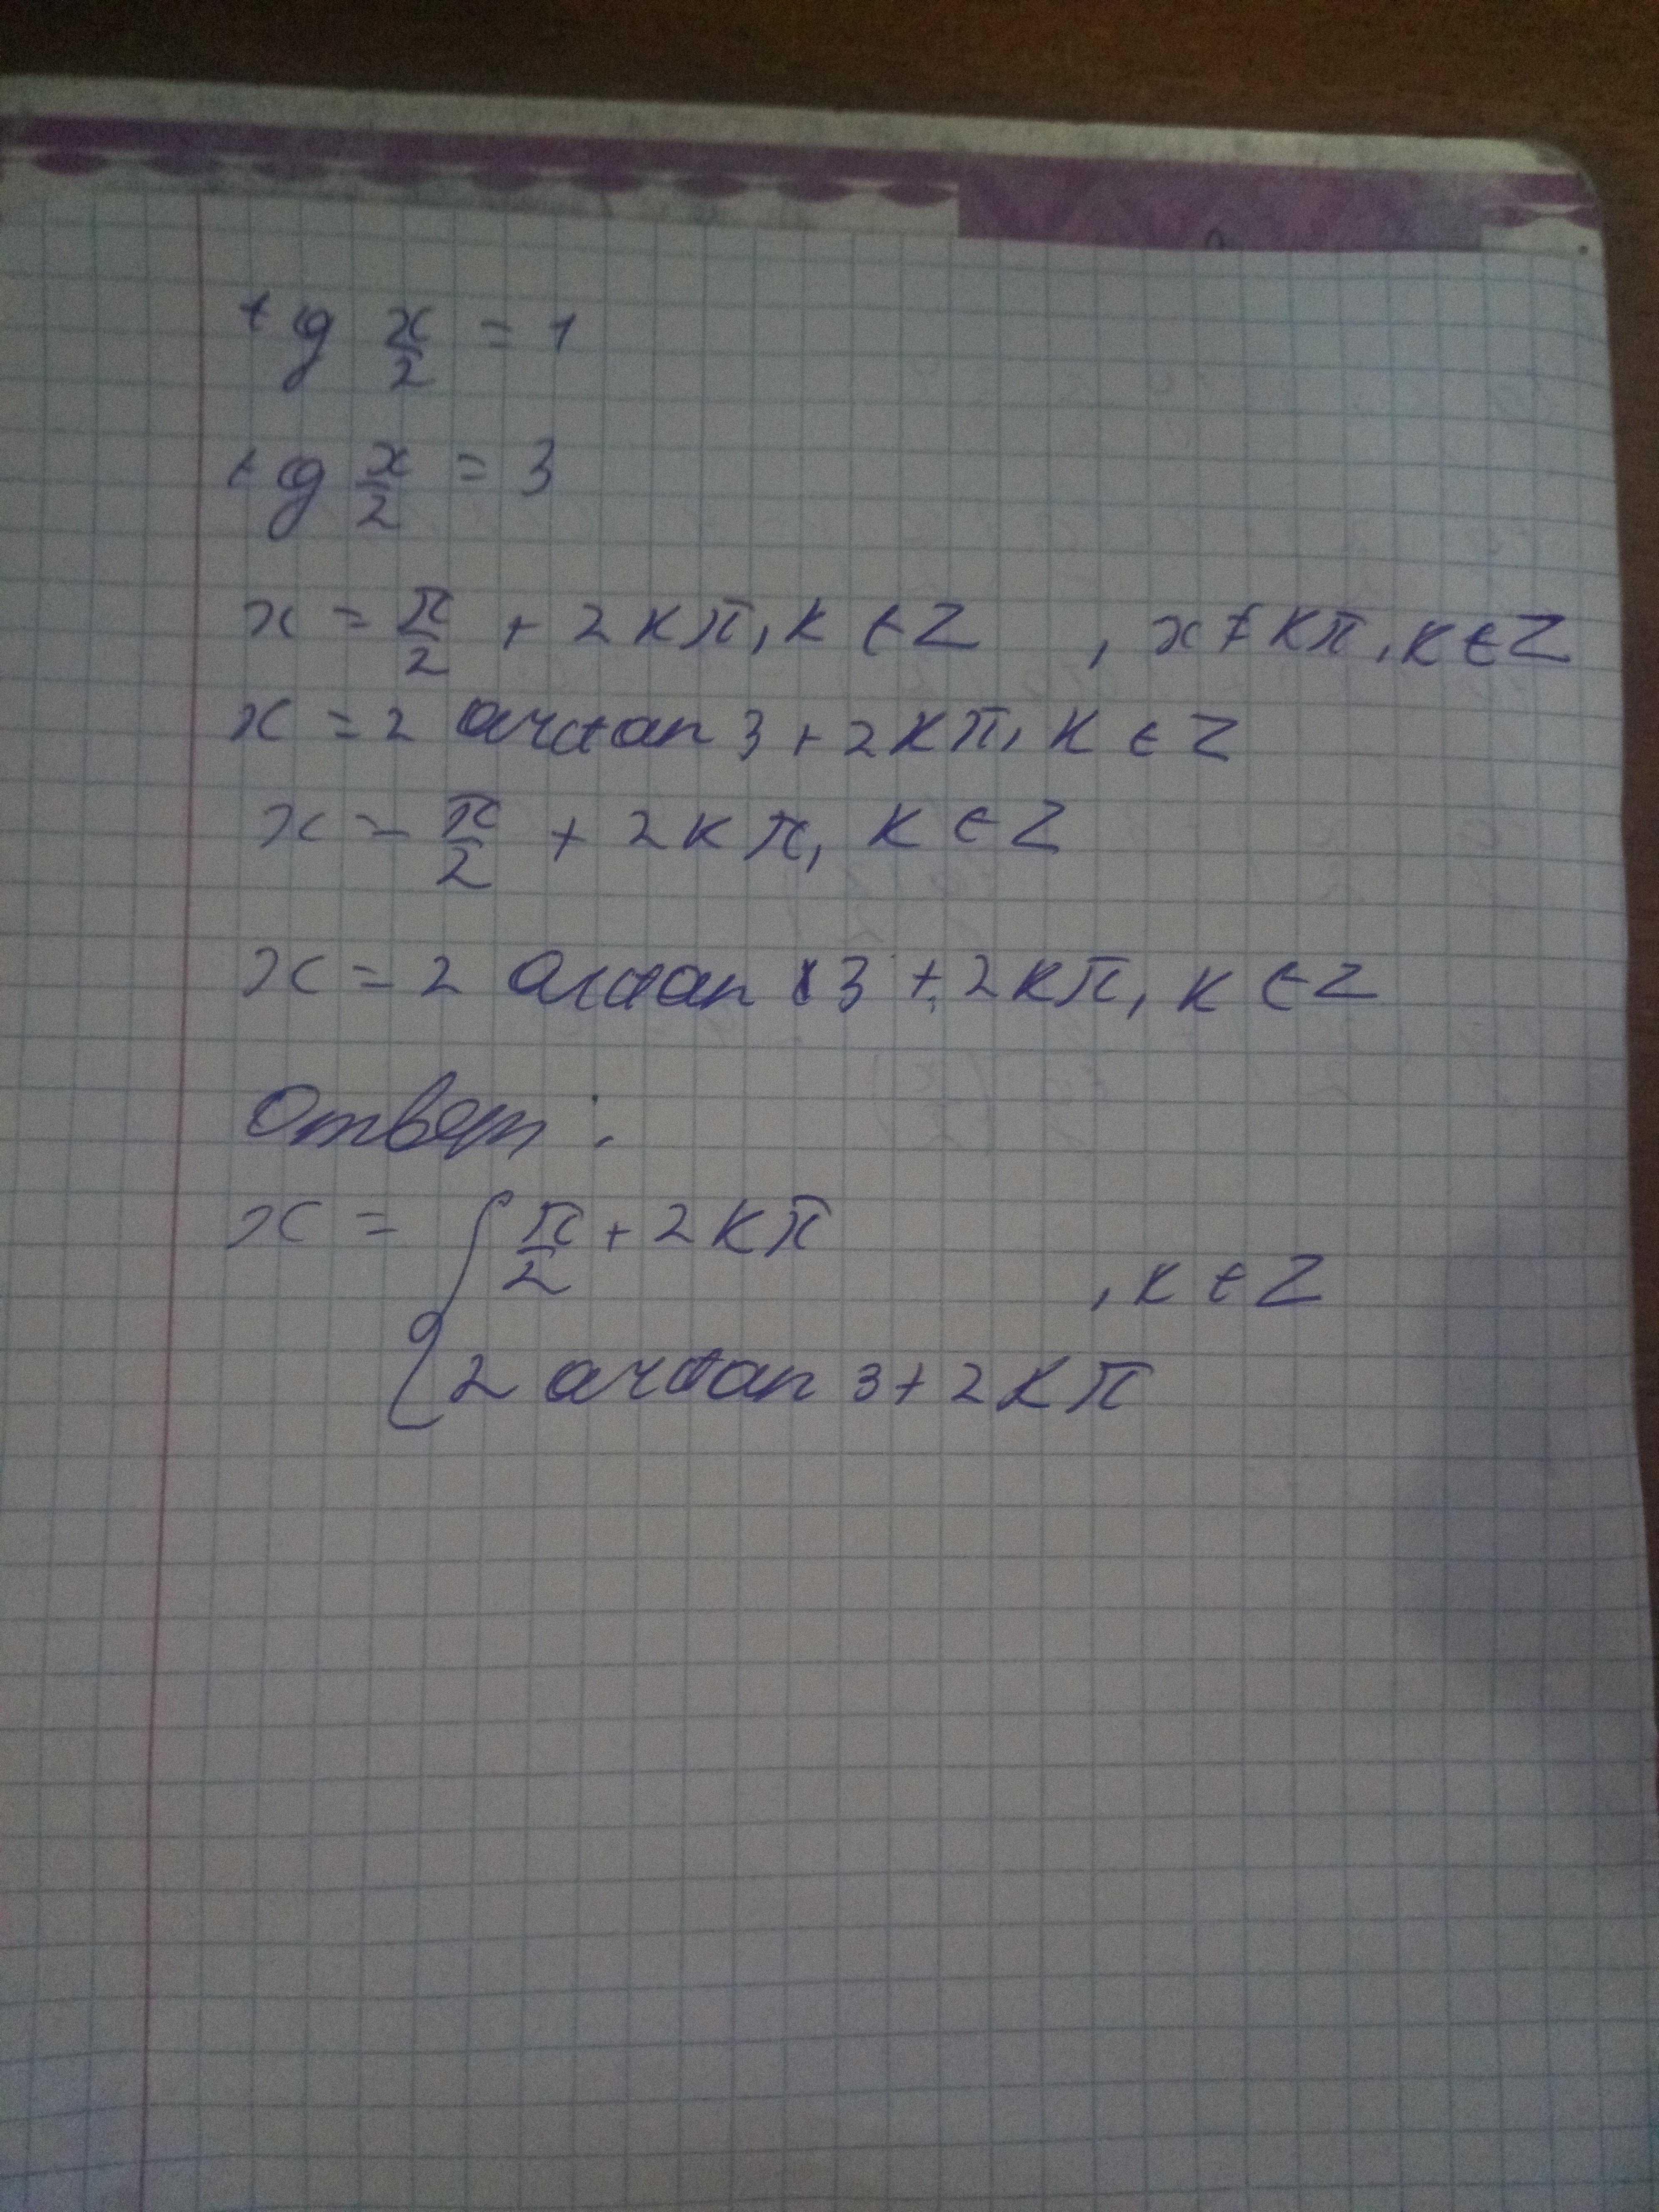 tg x/2 = 1
tg x/2 = 3
x = π/2 + 2kπ, k ∈ Z , x ≠ kπ, k ∈ Z
x = 2 arctan 3 + 2kπ, k ∈ Z
x = π/2 + 2kπ, k ∈ Z
x = 2 arctan 3 + 2kπ, k ∈ Z
Ответ:
x = { π/2 + 2kπ
, k ∈ Z
2 arctan 3 + 2kπ